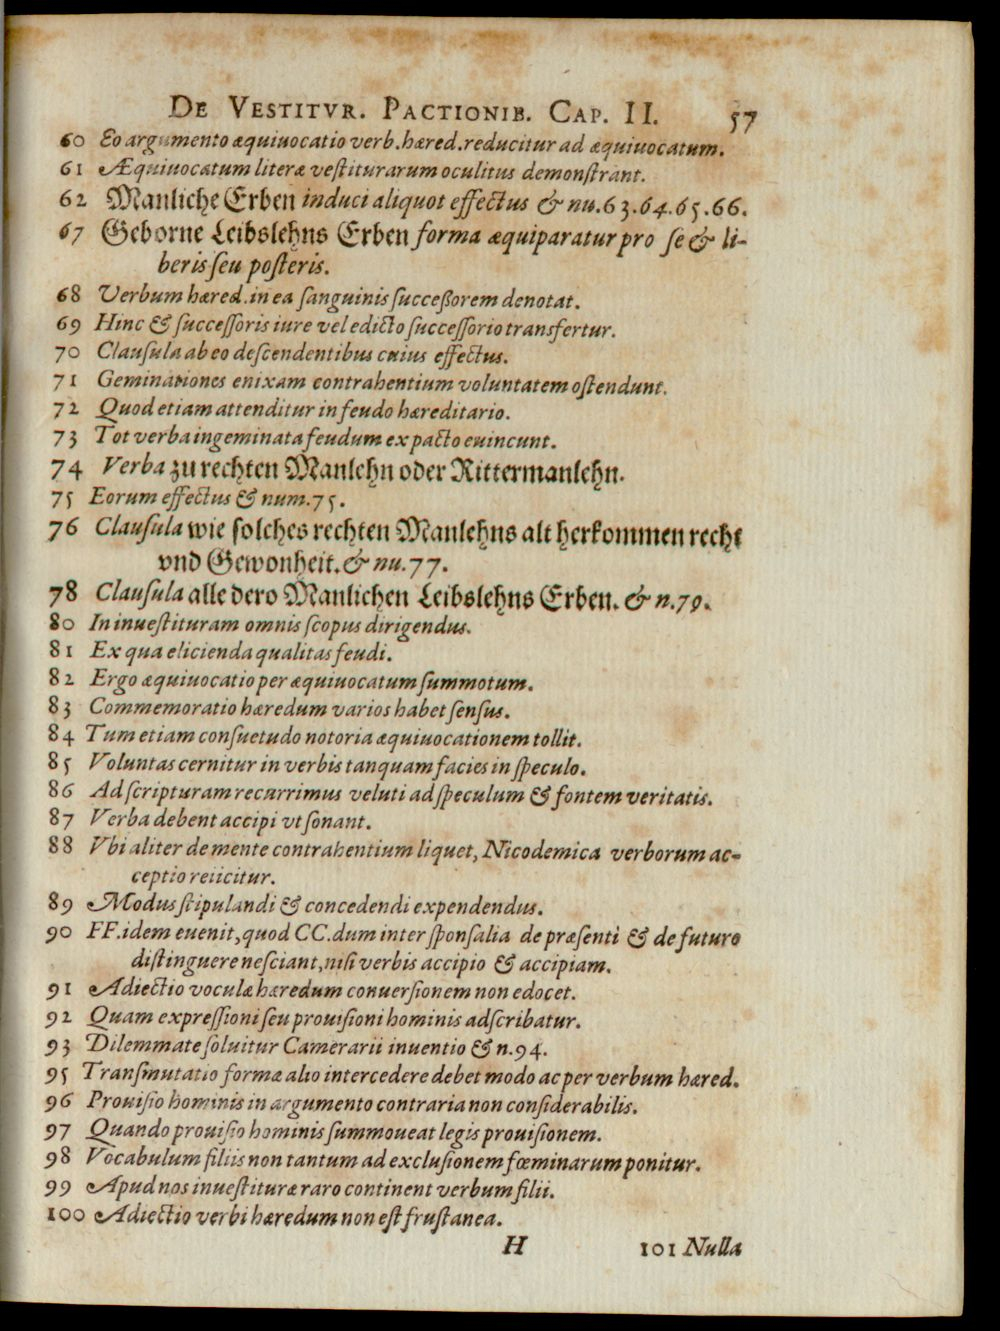 De Vestitvr. Pactionib. Cap. II. 57
60 Eo argumento æquiuocatio verb. hæred. reducitur ad æquiuocatum.
61 Æquiuocatum literæ vestiturarum oculitus demonstrant.
62 Manliche Erben induci aliquot effectus & nu. 63. 64. 65. 66.
67 Geborne Leibslehns Erben forma æquiparatur pro se & li-
beris seu posteris.
68 Verbum hæred. in ea sanguinis successorem denotat.
69 Hinc & successoris iure vel edicto successorio transfertur.
70 Clausula ab eo descendentibus cuius effectus.
71 Geminationes enixam contrahentium voluntatem ostendunt.
72 Quod etiam attenditur in feudo hæreditario.
73 Tot verba ingeminata feudum ex pacto euincunt.
74 Verba zu rechten Manlehn oder Rittermanlehn.
75 Eorum effectus & num. 75.
76 Clausula wie solches rechten Manlehns alt herkommen recht
vnd Gewonheit. & nu. 77.
78 Clausula alle dero Manlichen Leibslehns Erben. & n. 79.
80 In inuestituram omnis scopus dirigendus.
81 Ex qua elicienda qualitas feudi.
82 Ergo æquiuocatio per æquiuocatum summotum.
83 Commemoratio hæredum varios habet sensus.
84 Tum etiam consuetudo notoria æquiuocationem tollit.
85 Voluntas cernitur in verbis tanquam facies in speculo.
86 Ad scripturam recurrimus veluti ad speculum & fontem veritatis.
87 Verba debent accipi vt sonant.
88 Vbi aliter de mente contrahentium liquet, Nicodemica verborum ac-
ceptio reiicitur.
89 Modus stipulandi & concedendi expendendus.
90 FF. idem euenit, quod CC. dum inter sponsalia de præsenti & de futuro
distinguere nesciant, nisi verbis accipio & accipiam.
91 Adiectio voculæ hæredum conuersionem non edocet.
92 Quam expressioni seu prouisioni hominis adscribatur.
93 Dilemmate soluitur Camerarii inuentio & n. 94.
95 Transmutatio formæ alio intercedere debet modo ac per verbum hæred.
96 Prouisio hominis in argumento contraria non considerabilis.
97 Quando prouisio hominis summoueat legis prouisionem.
98 Vocabulum filiis non tantum ad exclusionem fœminarum ponitur.
99 Apud nos inuestituræ raro continent verbum filii.
100 Adiectio verbi hæredum non est frustanea.
H 101 Nulla